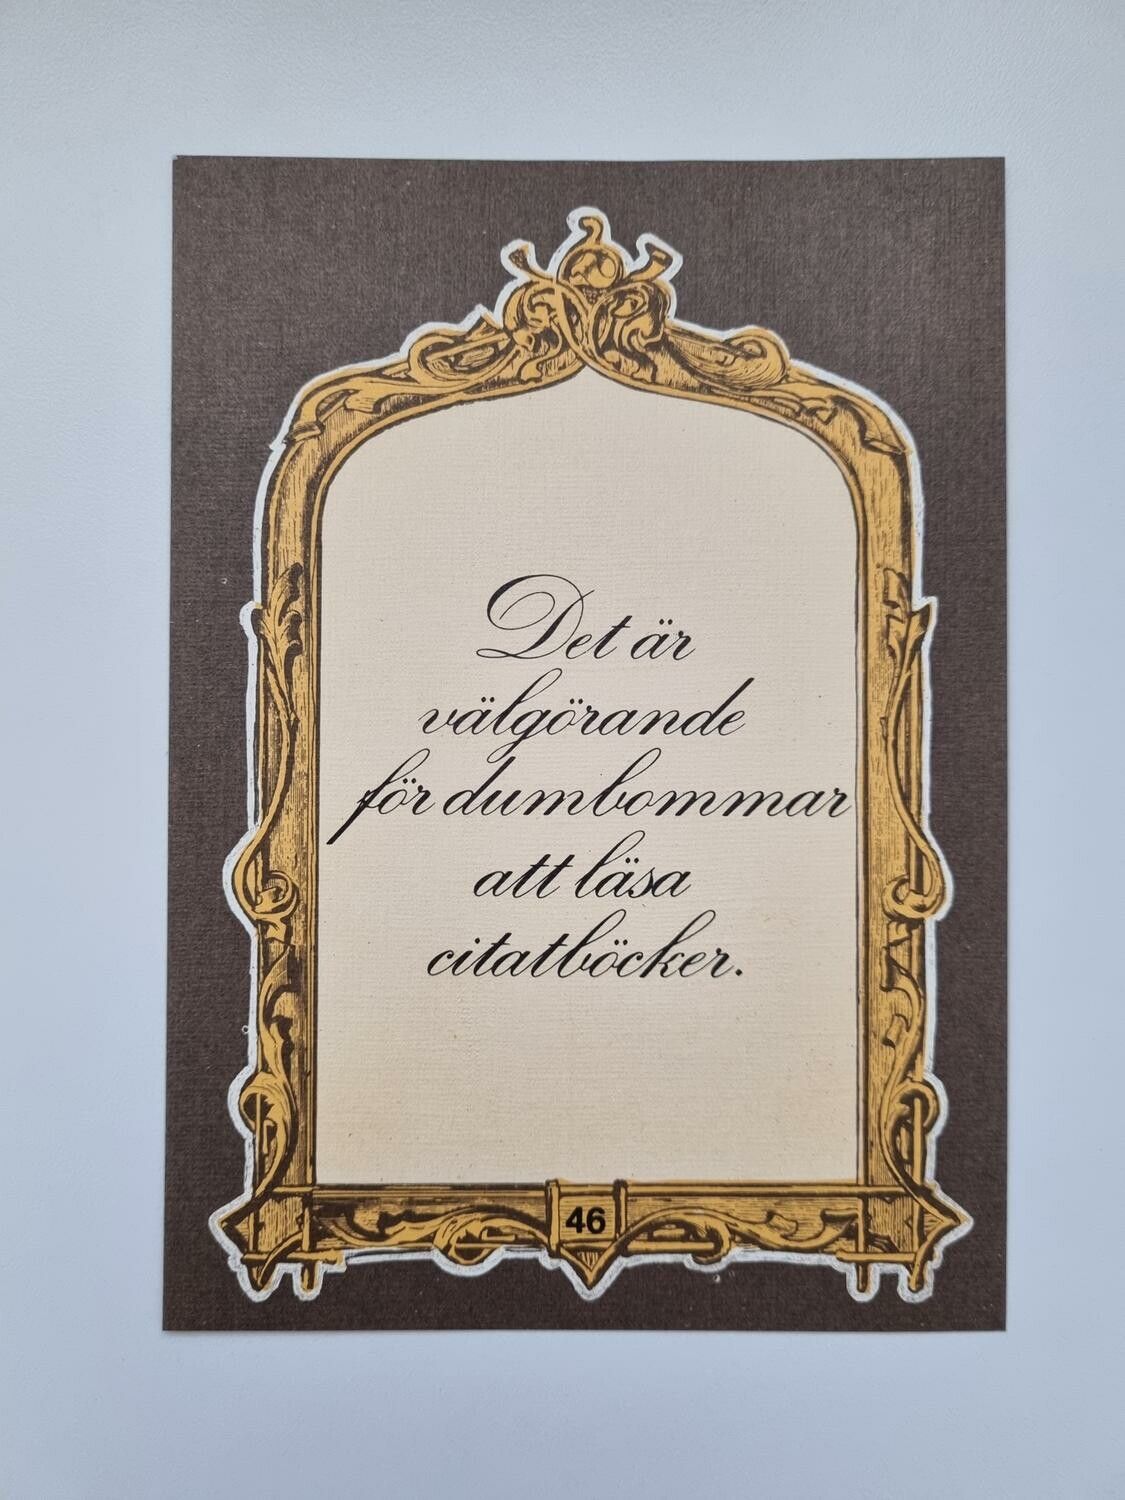 Det är
välgörande
för dumbommar
att läsa
citatböcker.
46